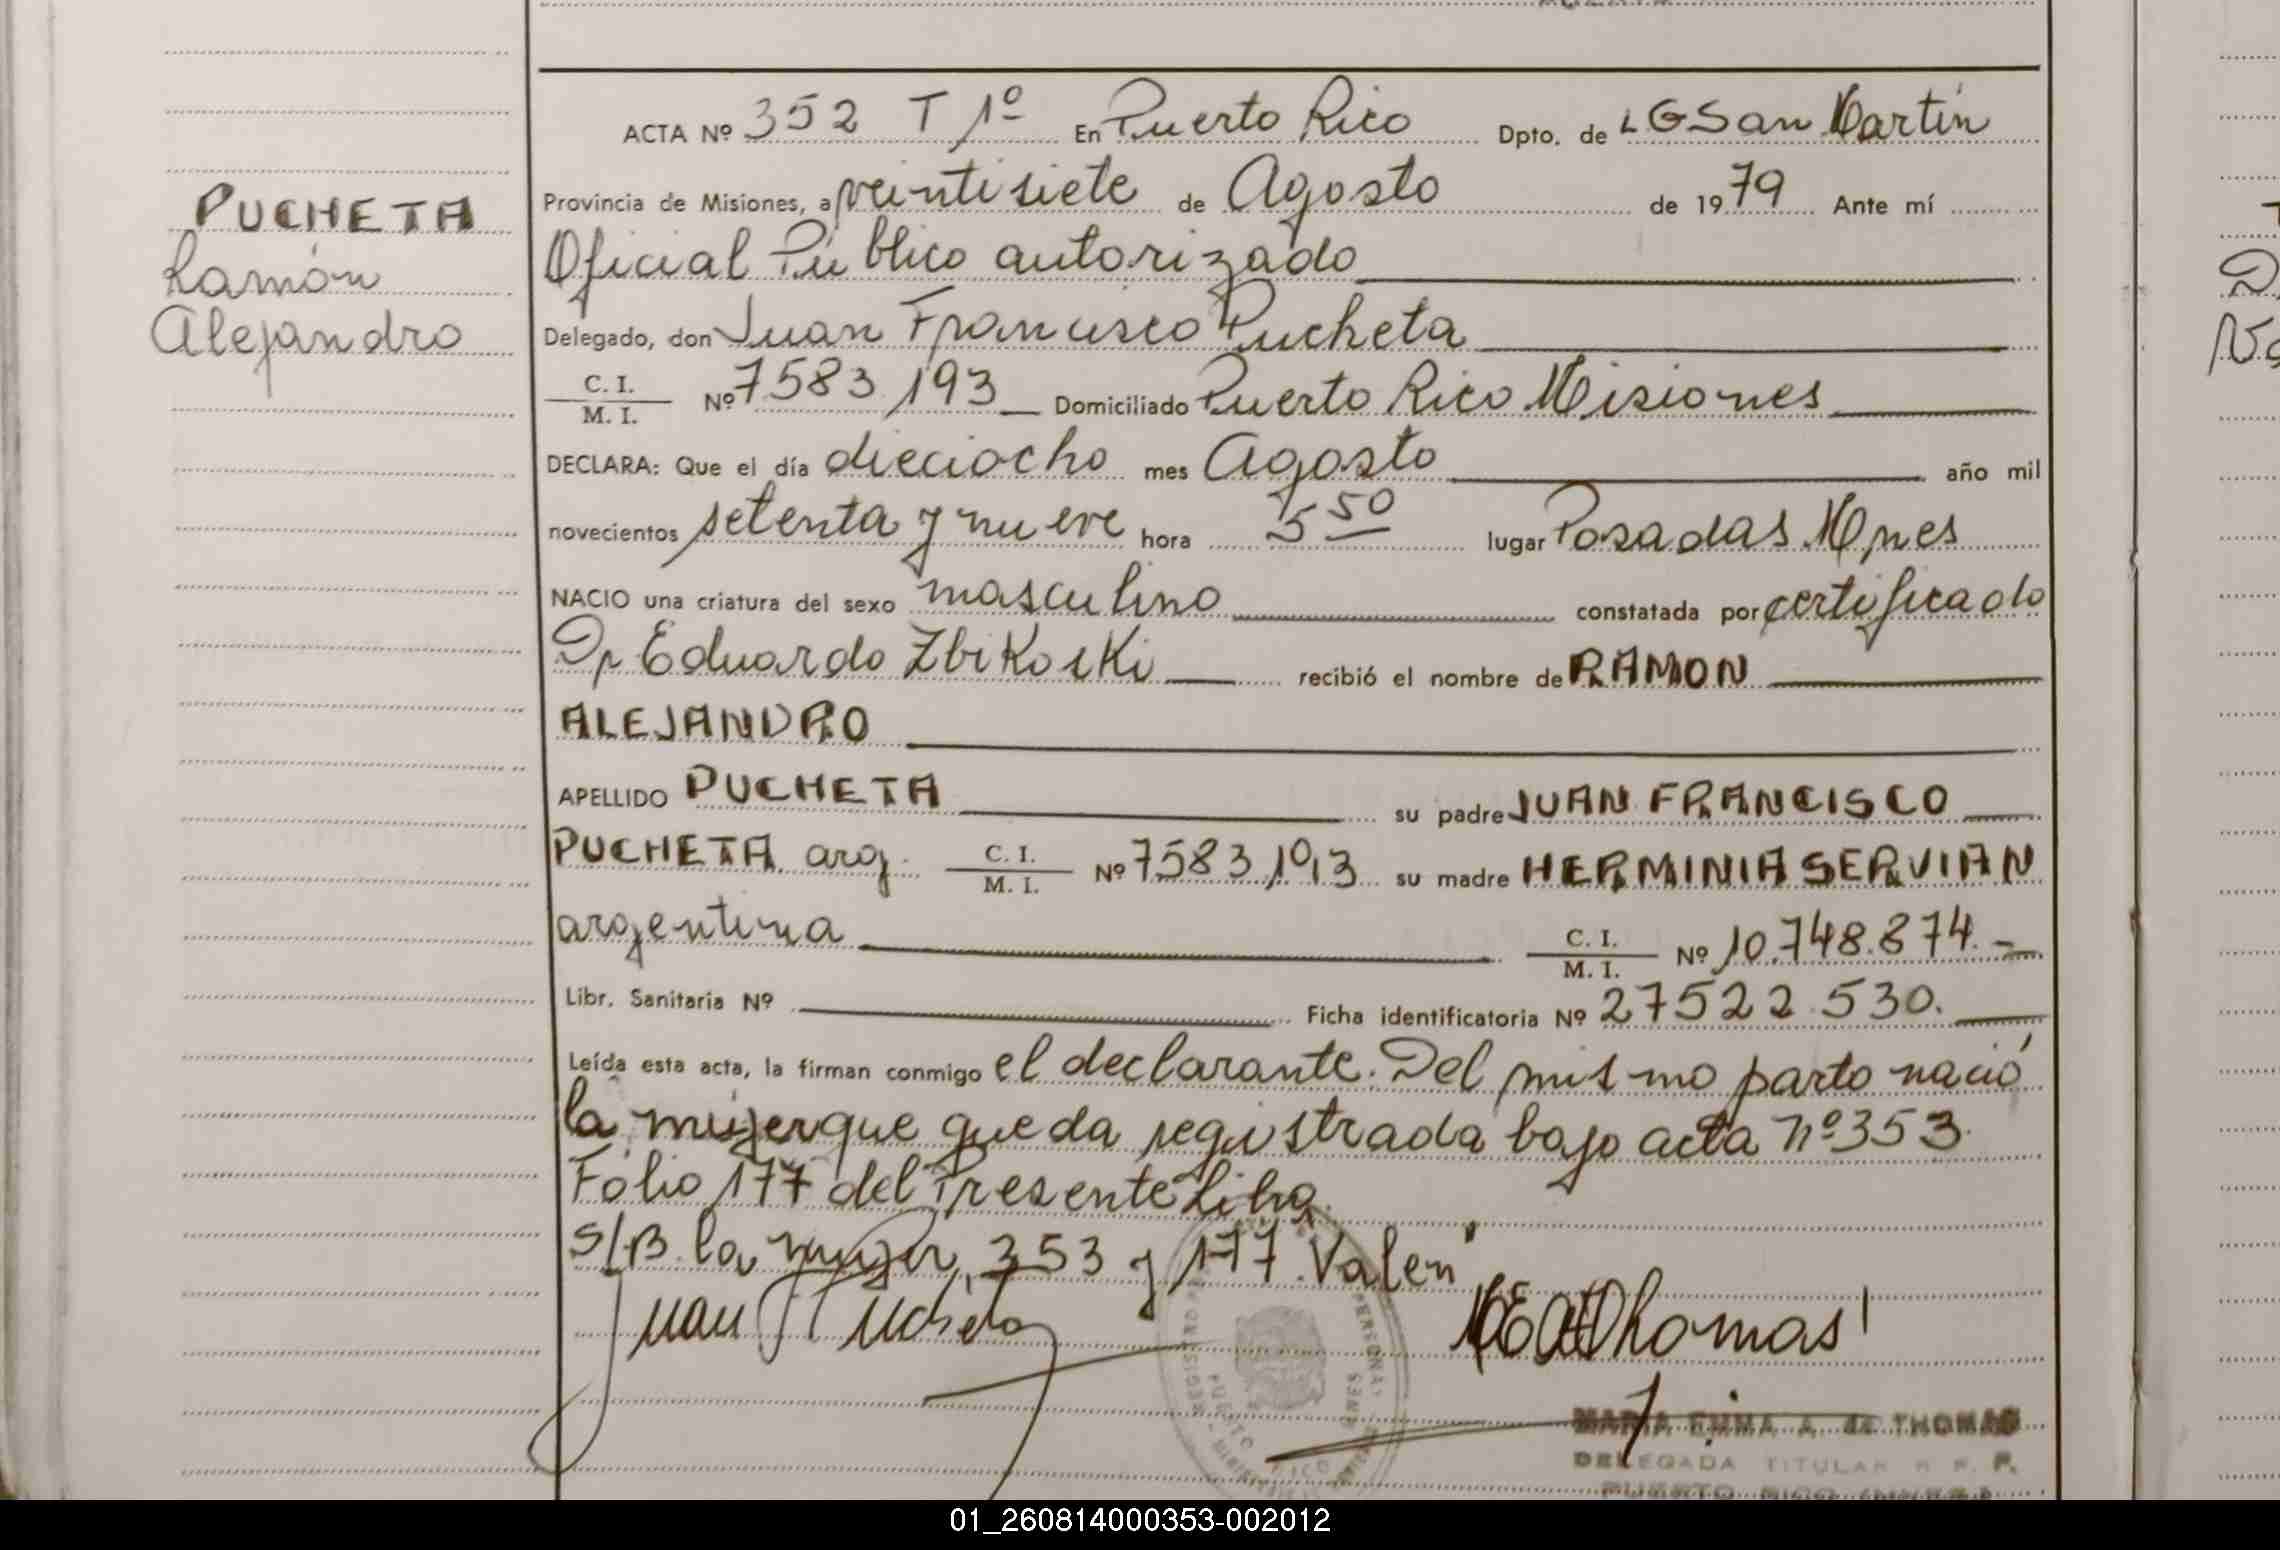 PUCHETA
Ramón
Alejandro
ACTA Nº 352 T 1º En Puerto Rico Dpto. de LGSan Martín
Provincia de Misiones, a veintisiete de Agosto de 1979 Ante mí
Oficial Público autorizado
Delegado, don Juan Francisco Pucheta
C. I. / M. I. Nº 7583.193 Domiciliado Puerto Rico Misiones
DECLARA: Que el día dieciocho mes Agosto año mil
novecientos setenta y nueve hora 5 50 lugar Posadas Mnes
NACIO una criatura del sexo masculino constatada por certificado
Dr Eduardo ZbiKosKi recibió el nombre de RAMON
ALEJANDRO
APELLIDO PUCHETA su padre JUAN FRANCISCO
PUCHETA arg. C. I. / M. I. Nº 7583.193 su madre HERMINIA SERVIAN
argentina C. I. / M. I. Nº 10.748.874.-
Libr. Sanitaria Nº Ficha identificatoria Nº 27522.530.
Leída esta acta, la firman conmigo el declarante. Del mismo parto nació
la mujer que queda registrada bajo acta nº 353.
Folio 177 del Presente Libro.
S/B. la mujer, 353 y 177. Valen
Juan F Pucheta
MEAdThomas
MARIA EMMA A. de THOMAS
DELEGADA TITULAR R. P.
PUERTO RICO
01_260814000353-002012